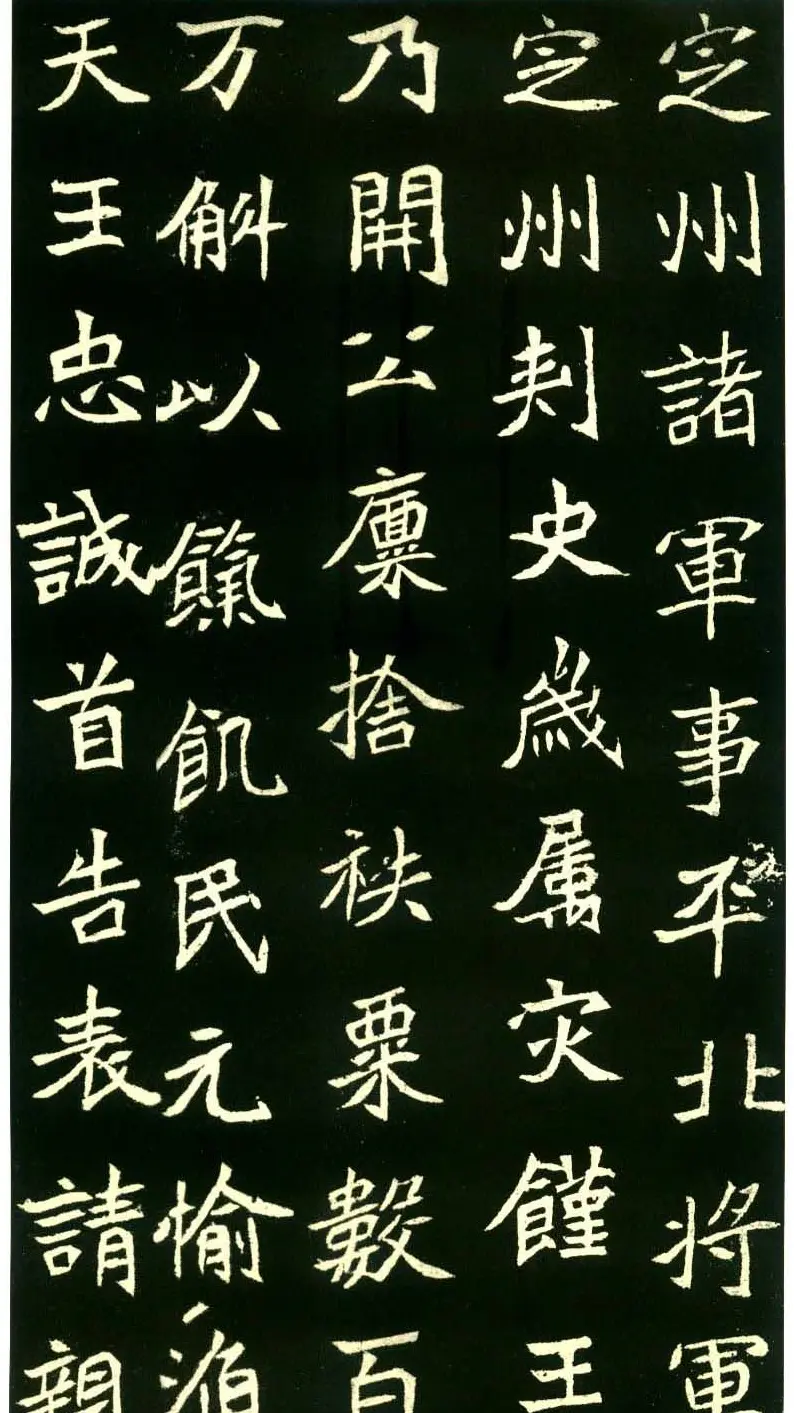 定州諸軍事平北將軍
定州刺史歲屬灾饉王
乃開公廩捨秩粟數百
万斛以餼飢民元愉
天王忠誠首告表請親